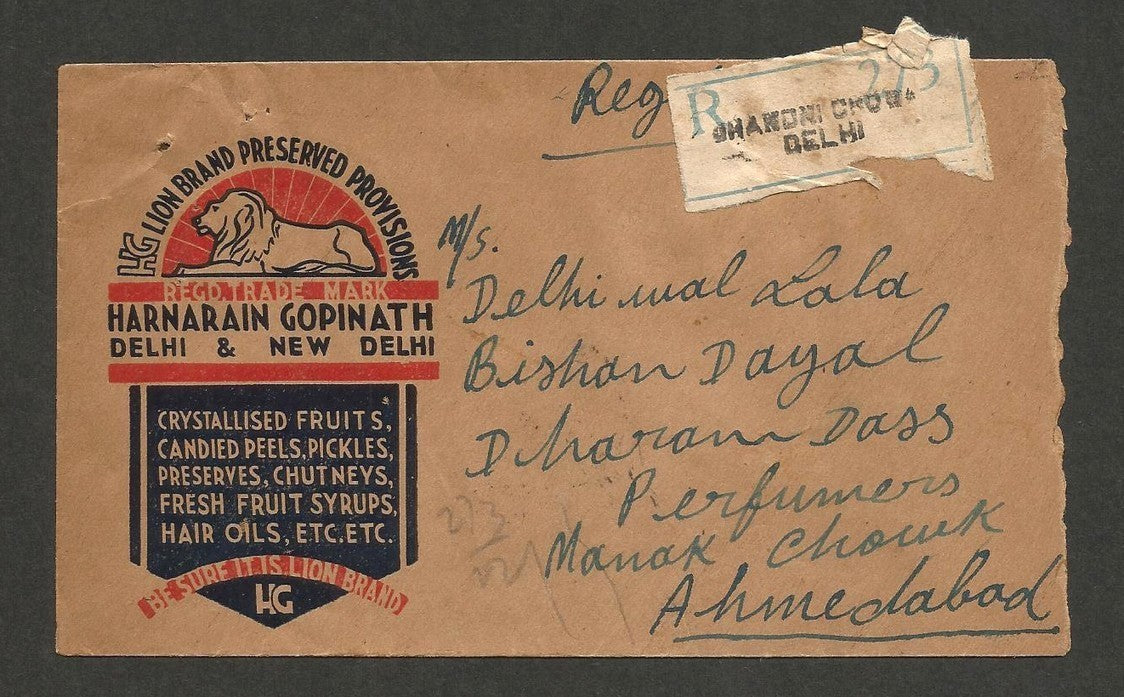 HG LION BRAND PRESERVED PROVISIONS
REGD. TRADE MARK
HARNARAIN GOPINATH
DELHI & NEW DELHI
CRYSTALLISED FRUITS,
CANDIED PEELS, PICKLES,
PRESERVES, CHUTNEYS,
FRESH FRUIT SYRUPS,
HAIR OILS, ETC. ETC.
BE SURE IT IS LION BRAND
HG
Reg
R 213
CHANDNI CHOWK
DELHI
M/s.
Delhi wal Lala
Bishan Dayal
Dharam Dass
Perfumers
Manak Chowk
Ahmedabad
213